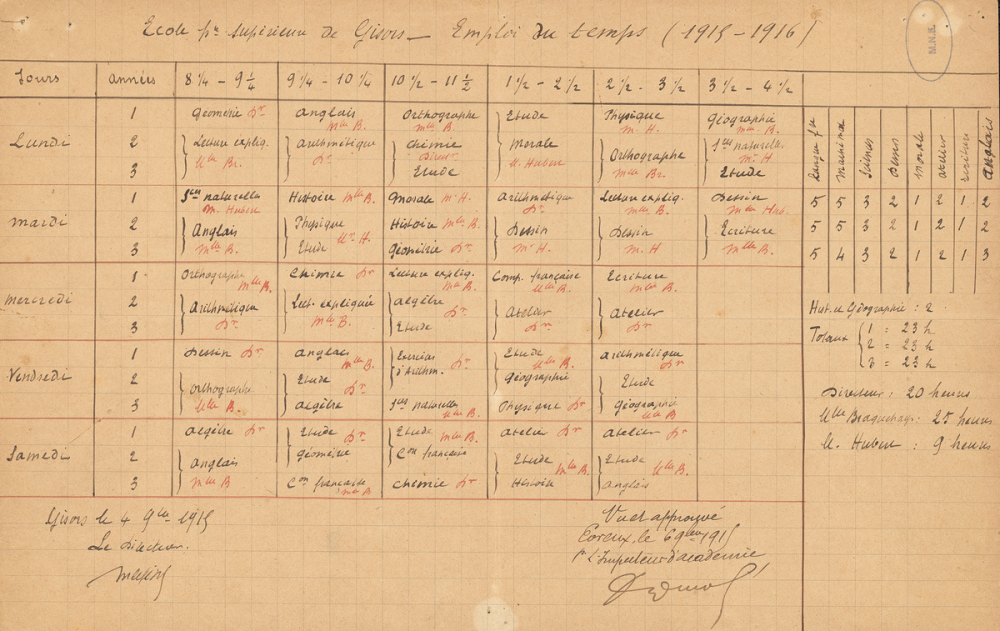 Ecole pre supérieure de Gisors — Emploi du temps (1915-1916)
M.N.E.
Jours années 8 1/4 - 9 1/4 9 1/4 - 10 1/4 10 1/2 - 11 1/2 1 1/2 - 2 1/2 2 1/2 - 3 1/2 3 1/2 - 4 1/2
Lundi
1 Géométrie Dr Anglais Mlle B. Orthographe Mlle B. Etude Physique M. H. Géographie Mlle B.
2 Lecture expliq. Mlle Br. Arithmétique Dr Chimie Direct Morale M. Hubert Orthographe Mlle Br. Sces naturelles Mr H
3 Etude Etude
Mardi
1 Sces naturelles M. Hubert Histoire Mlle B. Morale Mr H. Arithmétique Dr Lecture expliq. Mlle B. Dessin
2 Anglais Mlle B. Physique Mr H. Histoire Mlle B. Dessin Mr H. Dessin M. H Ecriture Mlle B.
3 Etude Géométrie Dr
Mercredi
1 Orthographe Mlle B. Chimie Dr Lecture expliq. Mlle B. Comp. française Mlle B. Ecriture Mlle B.
2 Arithmétique Dr Lect. expliquée Mlle B. Algèbre Dr Atelier Dr Atelier Dr
3 Etude
Vendredi
1 Dessin Dr Anglais Mlle B. Exercices d'Arithm. Etude Mlle B. Arithmétique Dr
2 Orthographe Mlle B. Etude Dr Géographie Etude
3 Algèbre Sces naturelles Mlle B. Physique Dr Géographie Mlle B
Samedi
1 Algèbre Dr Etude Dr Etude Mlle B. Atelier Dr Atelier Dr
2 Anglais Mlle B Géométrie Con française Etude Mlle B. Etude Mlle B.
3 Con française Mlle B Chimie Dr Histoire Anglais
Langue fse Sciences Dessin Morale Atelier Ecriture Anglais
5 5 3 2 1 2 1 2
5 5 3 2 1 2 1 2
5 4 3 2 1 2 1 3
Hist. et Géographie : 2
Totaux
1 = 23 h
2 = 23 h
3 = 23 h
Directeur : 20 heures
Mlle : 25 heures
M. Hubert : 9 heures
Gisors le 4 9bre 1915
Le Directeur.
Vu et approuvé
Evreux, le 6 9bre 1915
Pr L'Inspecteur d'académie